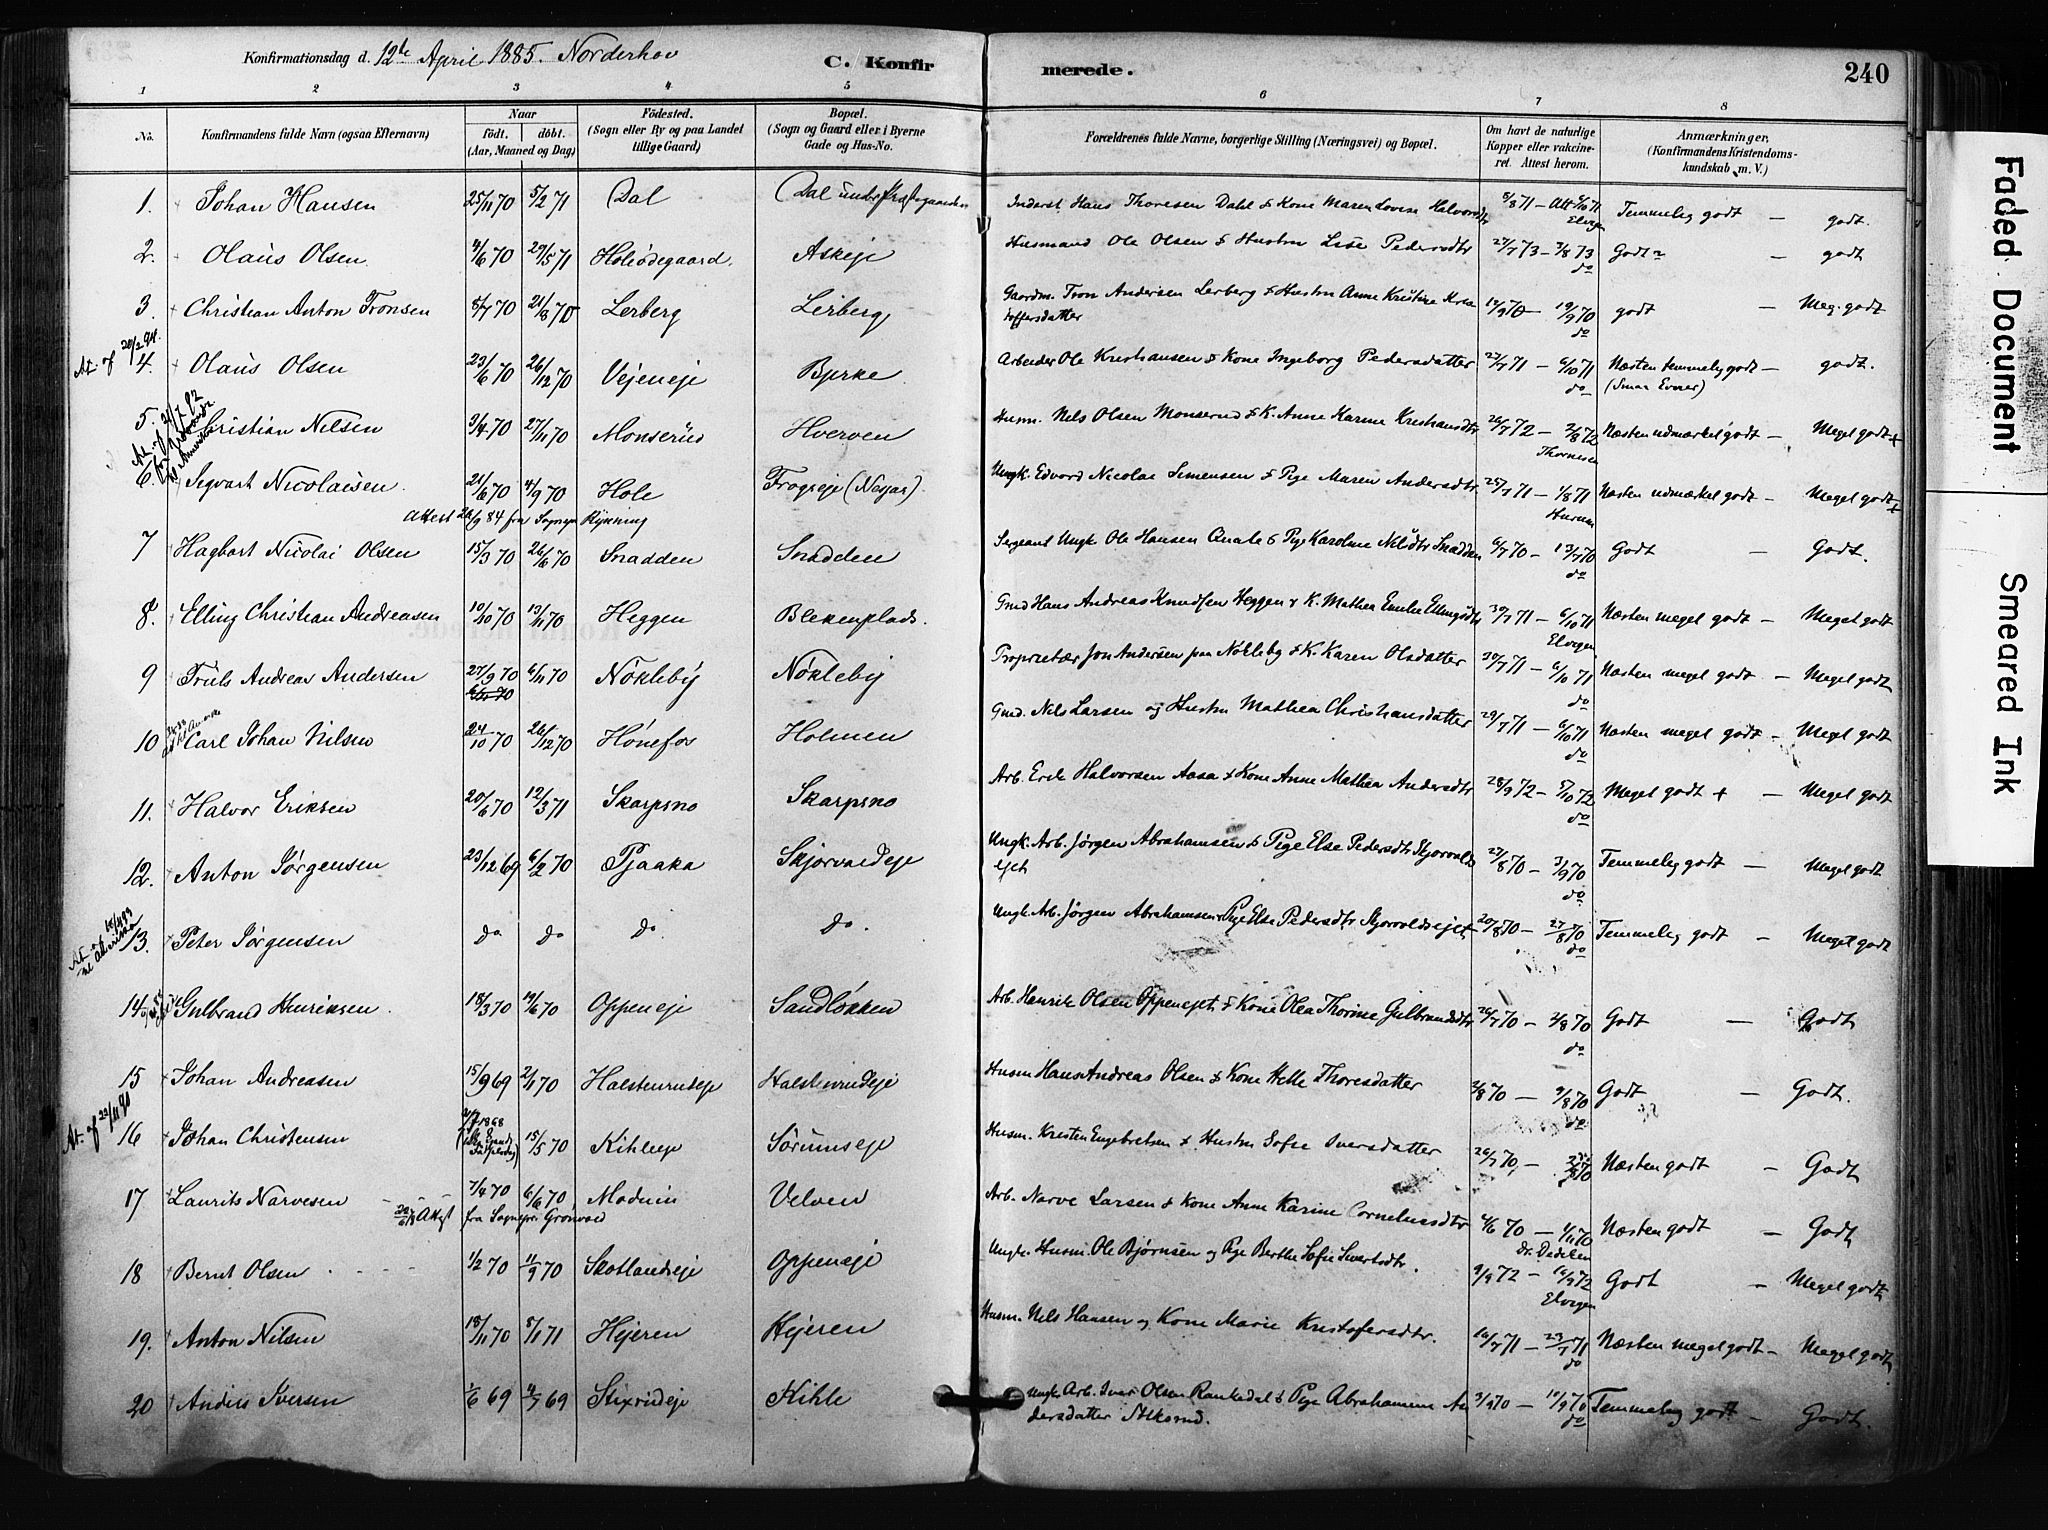 Konfirmationsdag d. 12te April 1885. Norderhov
C. Konfirmerede.
240
1 2 3 4 5 6 7 8
No.
Konfirmandens fulde Navn (ogsaa Efternavn)
Naar
födt. döbt.
(Aar, Maaned og Dag)
Födested.
(Sogn eller By og paa Landet
tillige Gaard)
Bopæl.
(Sogn og Gaard eller i Byerne
Gade og Hus-No.
Forældrenes fulde Navne, borgerlige Stilling (Næringsvei) og Bopæl.
Om havt de naturlige
Kopper eller vakcine-
ret. Attest herom.
Anmærkninger,
(Konfirmandens Kristendoms-
kundskab m. V.)
1. Johan Hansen 25/11 70 5/2 71 Dal Dal under Inderst Hans Thoresen Dahl & Kone Maren Lovise Halvorsdtr 5/8 71 — Att 6/10 71 Elvigen Temmelig godt — godt.
2. Olaus Olsen 4/6 70 29/5 71 Askeje Husmand Ole Olsen & Hustru Lise Pedersdtr 27/7 73 — 3/8 73 do Godt — godt
3. Christian Anton Tronsen 8/7 70 21/8 70 Lerberg Lerberg Gaardm. Tron Andersen Lerberg & Hustru Anne Kristine Kris
toffersdatter 19/9 70 do godt — Meg. godt
At. af 20/2 94.
4. Olaus Olsen 23/6 70 26/12 70 Vejeneje Bjerke Arbeider Ole Kristiansen & Kone Ingeborg Pedersdatter 27/7 71 — 6/10 71 do Næsten temmelig godt — godt.
(Smaa Evner)
5. Christian Nilsen 3/4 70 27/11 70 Monserud Hverven Husm. Nels Olsen Monserud & K. Anne Karine Kristiansdtr 26/7 72 — 2/8 72 Thornesen Næsten udmærket godt — Meget godt +
6. Sigvart Nicolaisen. 21/6 70 4/9 70 Hole Frogseje Ungk. Edvard Nicolai Simensen & Pige Maren Andersdtr 25/7 71 — 1/8 71 Næsten udmærket godt — Meget godt +
Attest 26/9 84 fra Sognepr Rynning
7 Hagbart Nicolai Olsen 15/3 70 26/6 70 Snadden Snadden Sergeant Ungk. Ole Hansen Qvale & Pige Karoline Nilsdtr Snadden 6/7 70 — 13/7 70 do Godt — Godt.
8. Elling Christian Andreasen 10/10 70 13/11 70 Heggen Blekenplads. Gmd Hans Andreas Knudsen Heggen & K. Mathea Emilie Ellingsdtr 30/7 71 — 6/10 71 Elvigen Næsten meget godt — Meget godt
9 Truls Andreas Andersen 27/9 70 6/11 70 Nøkleby Nøkleby Proprietær Jon Andersen paa Nøkleby & K. Karen Olsdatter 30/7 71 — 6/10 71 do Næsten meget godt — Meget godt
10 Carl Johan Nilsen 24/10 70 26/12 70 Hønefos Holmen Gmd. Nils Larsen og Hustru Mathea Christiansdatter 29/7 71 — 6/10 71 do Næsten meget godt — Meget godt
11. Halvor Eriksen 20/6 70 12/3 71 Skarpsno Skarpsno Arb. Erik Halvorsen Aasa & Kone Anne Mathea Andersdtr 28/9 72 — 5/10 72 do Meget godt + — Meget godt
12. Anton Jørgensen 23/12 69 6/2 70 Pjaaka Skjørvoldeje Ungk. Arb. Jørgen Abrahamsen & Pige Else Pedersdtr Skjorvolds
ejet 27/8 70 — 3/9 70 do. Temmelig godt — Meget godt
13. Peter Jørgensen do do do do. Ungk. Arb. Jørgen Abrahamsen & Pige Else Pedersdtr Skjorvoldsejet 20/8 70 — 27/8 70 do Temmelig godt — Meget godt
14 Gulbrand Henriksen. 18/3 70 19/6 70 Oppeneje Sandløkken Arb. Henrik Olsen Oppenejet & Kone Olea Thorine Gulbrandsdtr 26/7 70 — 2/8 70 do Godt — Godt
15 Johan Andreasen 15/9 69 2/1 70 Halstenrudeje Halstenrudeje Husm Hans Andreas Olsen & Kone Helle Thoresdatter 2/8 70 — 9/8 70 do Godt — Godt.
At. af 22/11 90
16 Johan Christensen 15/5 70 Kihleeje Sørumseje Husm. Kristen Engebretsen & Hustru Sofie Iversdatter 26/7 70, — Næsten godt — Godt
17 Laurits Narvesen 7/4 70 6/6 70 Modum Velven Arb. Narve Larsen & Kone Anne Karine Corneliussdtr 4/6 70 — 4/11 70 Næsten godt — Godt
Attest fra Sognepr. Grønvold
18 Bernt Olsen 1/2 70 11/9 70 Skotlandseje Oppeneje Ungk. Husm. Ole Bjørnsen og Pige Berthe Sofie Sivertsdtr. 9/9 72 — 16/9 72 Elvigen Godt — Meget godt
19. Anton Nilsen 18/11 70 8/1 71 Hejeren Hejeren Husm. Nels Hansen og Kone Marie Kristofersdtr. 16/7 71 — 23/7 71 do Næsten meget godt — Meget godt
20 Anders Iversen 1/6 69 11/7 69 Stixrudeje Kihle Ungk. Arb. Iver Olsen Rankedal & Pige Abrahamine An
dersdatter 3/9 70 — 10/9 70 do Temmelig godt — Godt.
Faded Document
Smeared Ink